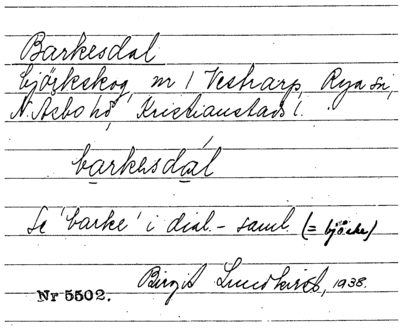 Barkesdal
björkskog, nr 1 Vestrarp, Rya sn,
N. Åsbo hd, Kristianstads l.
barkesdál
Se 'barke' i dial.-saml. (= björke)
Birgit Lundkvist, 1938.
Nr 5502.